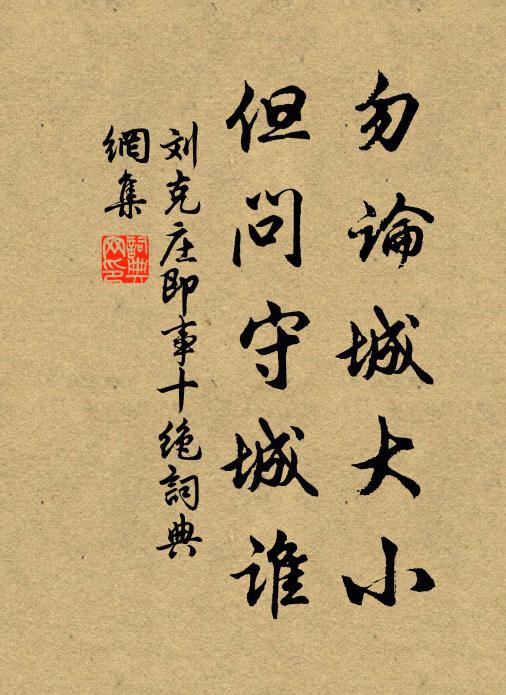 勿論城大小
但問守城誰
刘克庄即事十绝詞典
網集
詞典網印